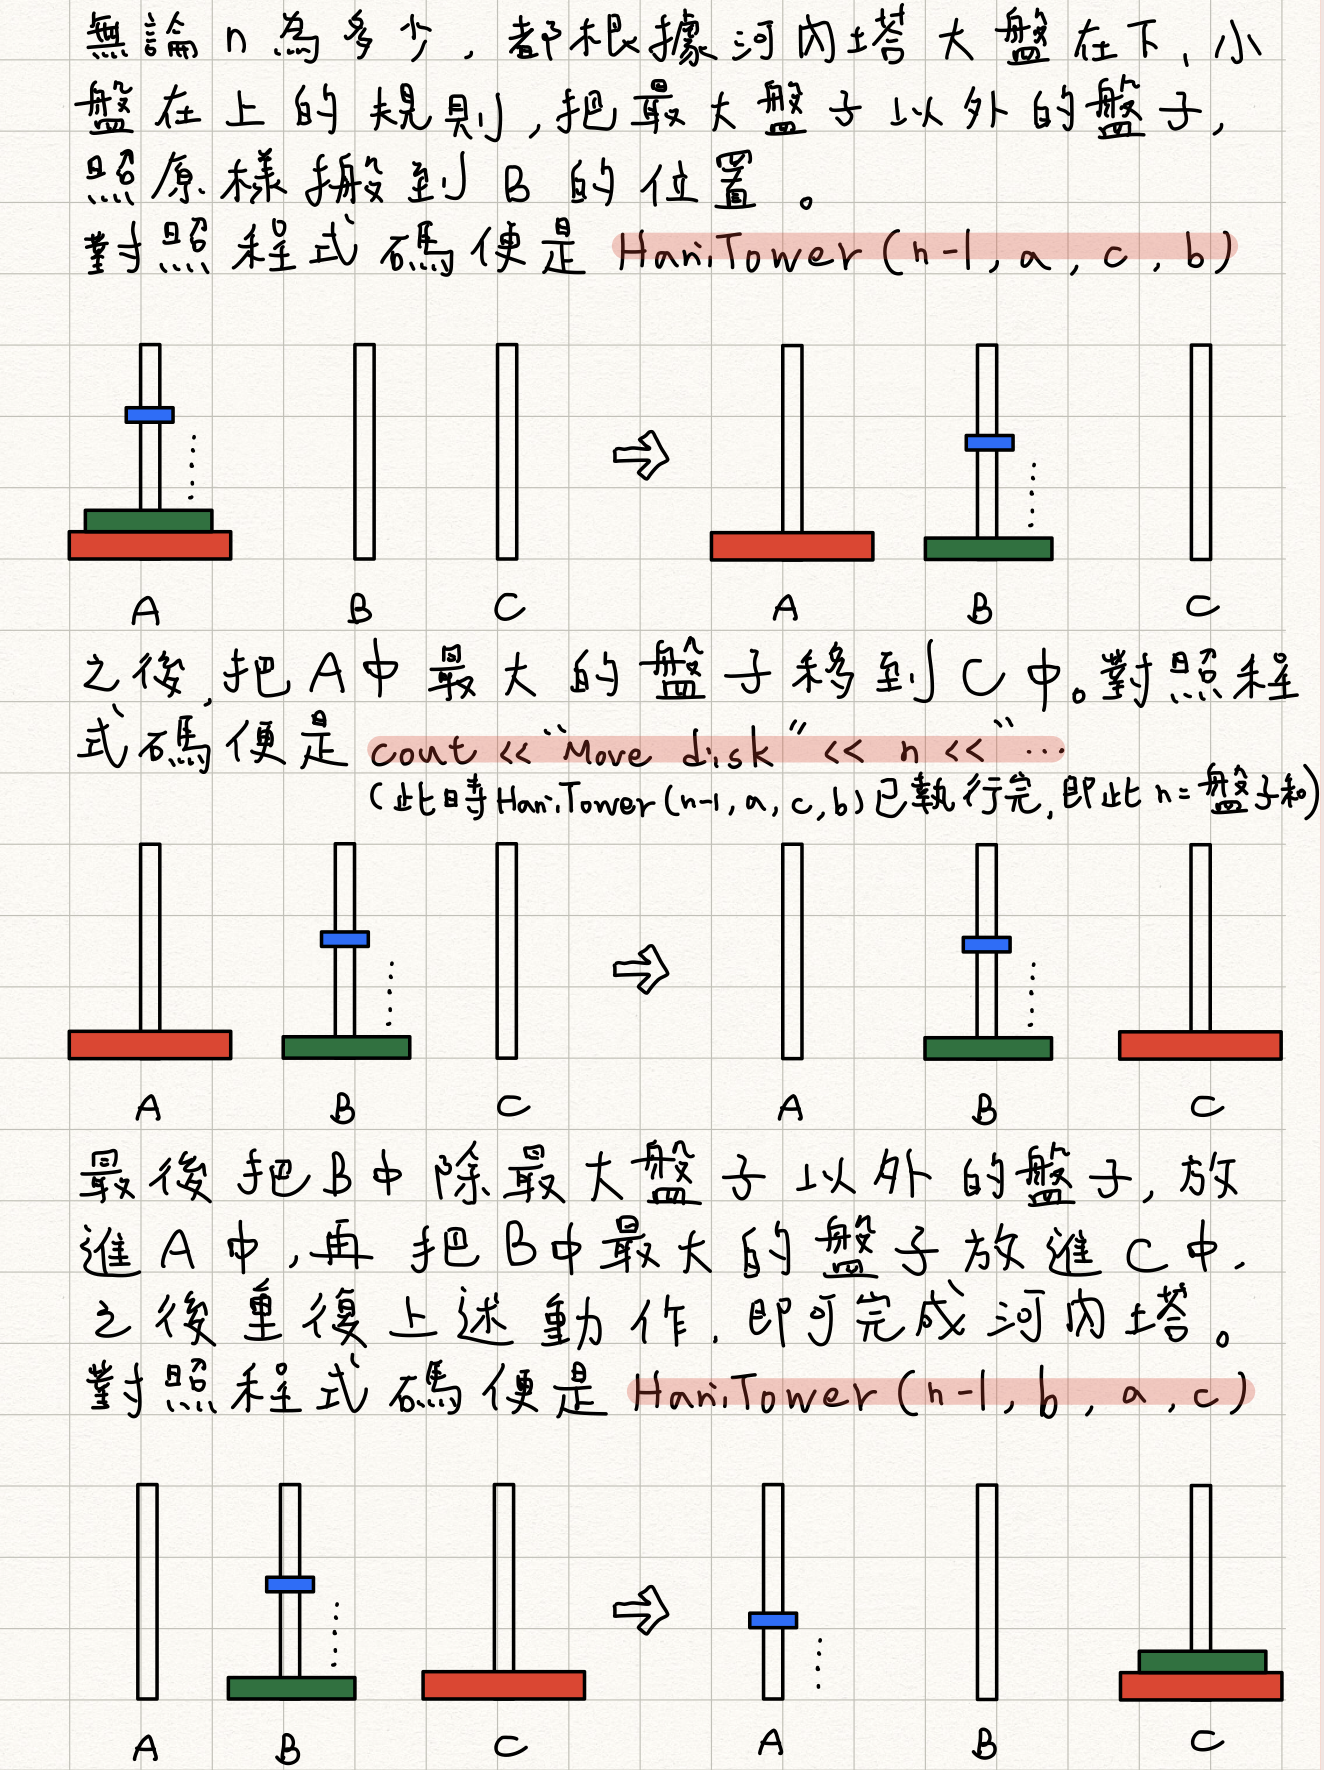 無論n為多少,都根據河內塔大盤在下、小
盤在上的規則,把最大盤子以外的盤子,
照原樣搬到B的位置。
對照程式碼便是 HaniTower(n-1, a, c, b)
A B C A B C
之後,把A中最大的盤子移到C中。對照程
式碼便是 cout << "Move disk" << n << "...
(此時HaniTower(n-1,a,c,b)已執行完,即此n=盤子和)
A B C A B C
最後把B中除最大盤子以外的盤子,放
進A中,再把B中最大的盤子放進C中.
之後重復上述動作.即可完成河內塔。
對照程式碼便是 HaniTower(n-1, b, a, c)
A B C A B C